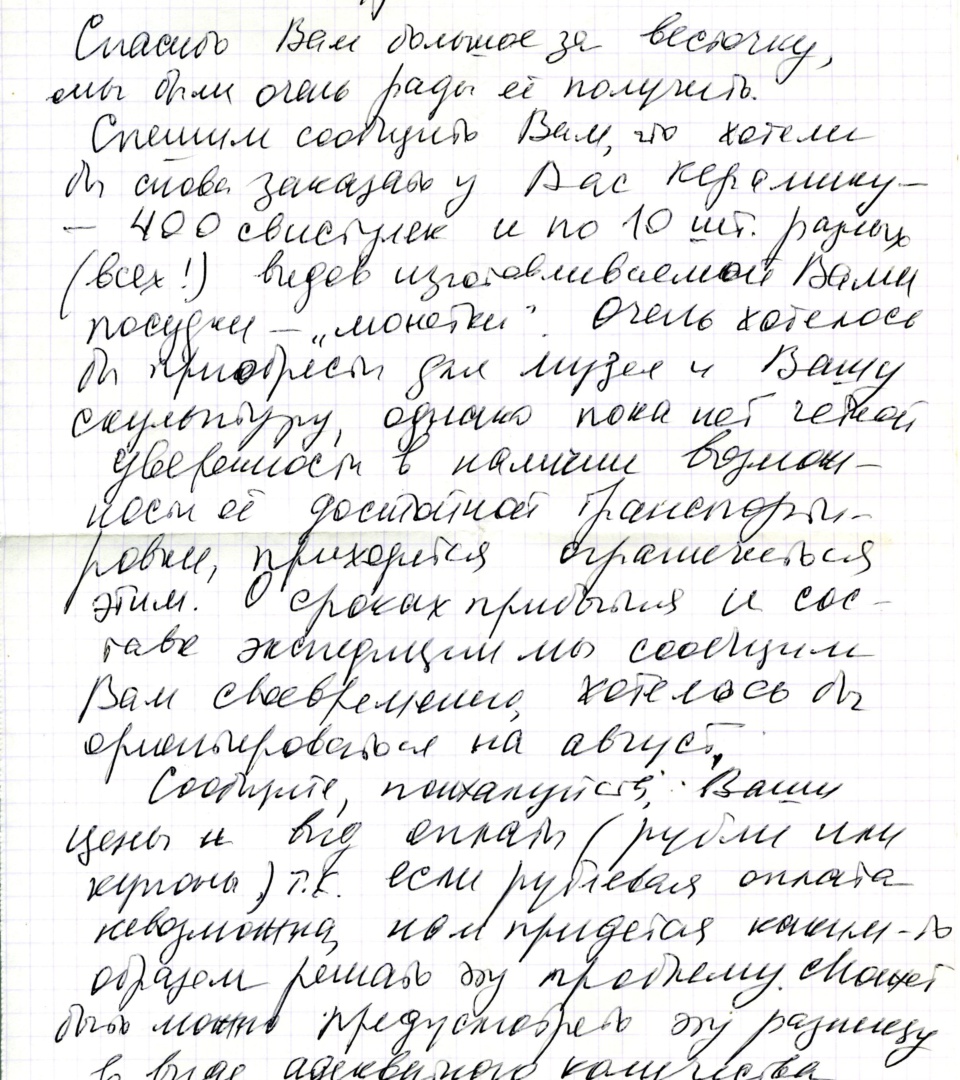 Спасибо Вам большое за весточку,
мы были очень рады её получить.
Спешим сообщить Вам, что хотели
бы снова заказать у Вас керамику –
– 400 свистулек и по 10 шт. разных
(всех!) видов изготавливаемой Вами
посудки – „монетки". Очень хотелось
бы приобрести для музея и Вашу
скульптуру, однако пока нет четкой
уверенности в наличии возмож-
ности её достойной транспорти-
ровки, приходится ограничиться
этим. О сроках прибытия и сос-
таве экспедиции мы сообщим
Вам своевременно, хотелось бы
ориентироваться на август.
Сообщите, пожалуйста, Ваши
цены и вид оплаты (рубли или
купоны), т.к. если рублевая оплата
невозможна, нам придется каким-то
образом решать эту проблему. Может
быть можно предусмотреть эту разницу
в виде адекватного количества